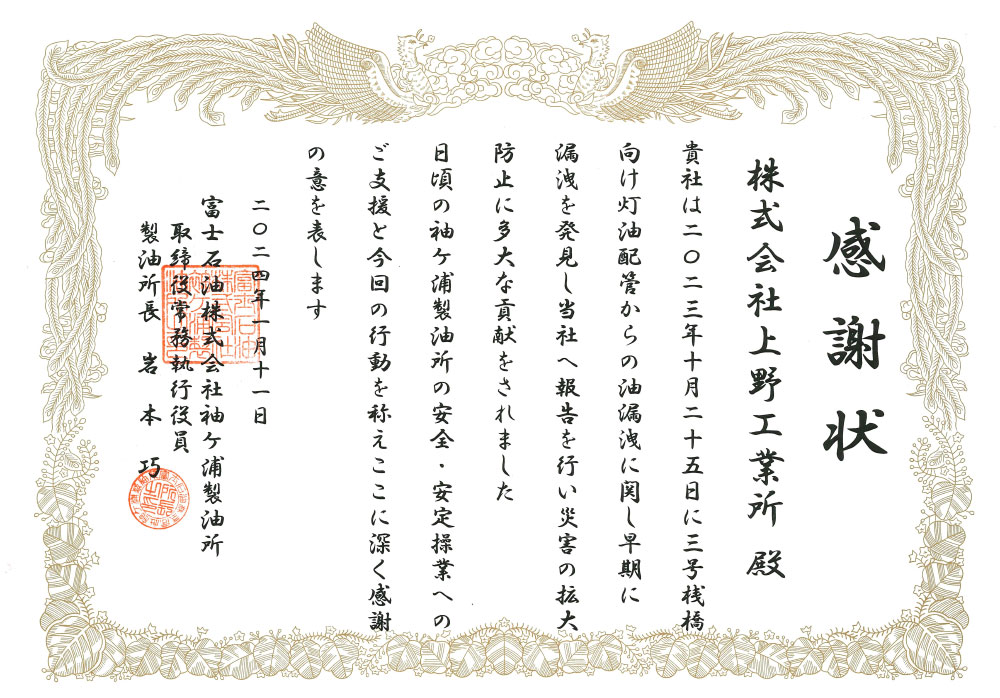 感謝状
株式会社上野工業所 殿
貴社は二〇二三年十月二十五日に三号桟橋
向け灯油配管からの油漏洩に関し早期に
漏洩を発見し当社へ報告を行い災害の拡大
防止に多大な貢献をされました
日頃の袖ケ浦製油所の安全・安定操業への
ご支援と今回の行動を称えここに深く感謝
の意を表します
二〇二四年一月十一日
富士石油株式会社袖ケ浦製油所
取締役常務執行役員
製油所長 岩本 巧